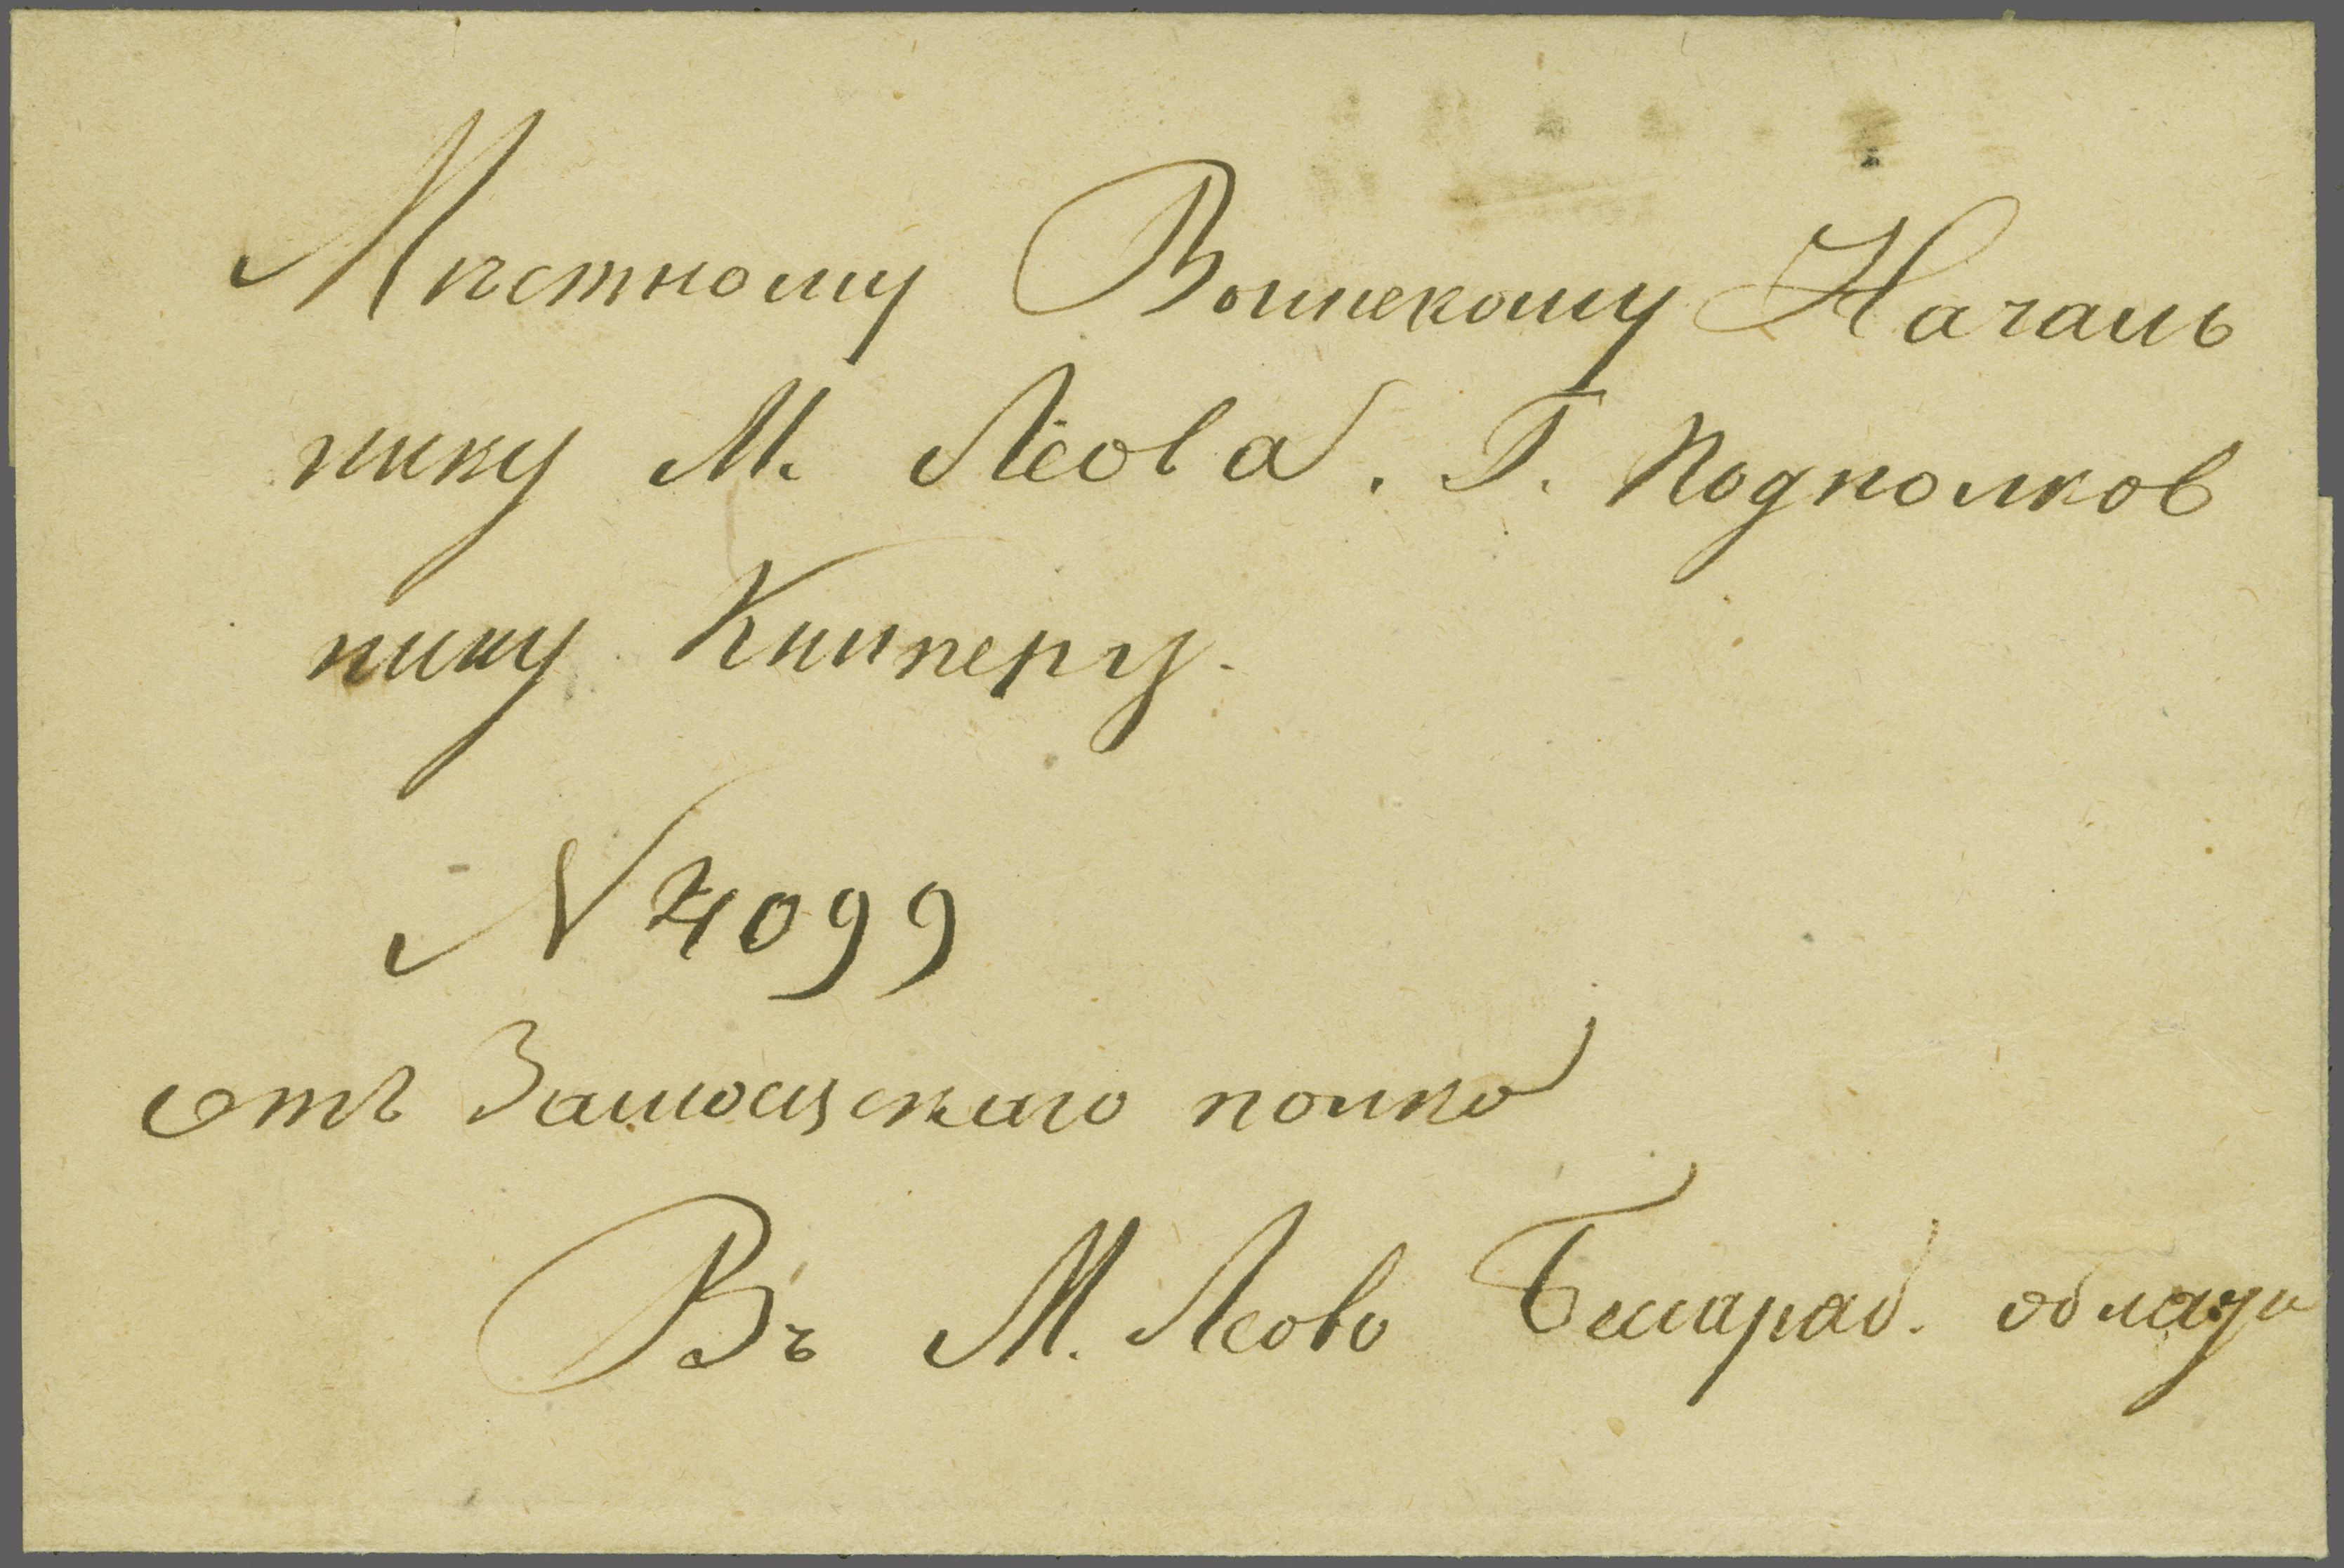 Мѣстному Воинскому Началь
нику М. Леова. Г. Подполков
нику Книперу.
N 4099
отъ Замосцскаго полка
Въ М. Леово Бессараб. области